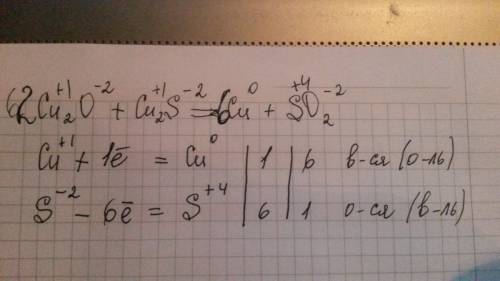 2Cu₂⁺¹O⁻² + Cu₂⁺¹S⁻² = 6Cu⁰ + S⁺⁴O₂⁻²
Cu⁺¹ + 1ē = Cu⁰ | 1 | 6 в-ся (о-ль)
S⁻² - 6ē = S⁺⁴ | 6 | 1 о-ся (в-ль)